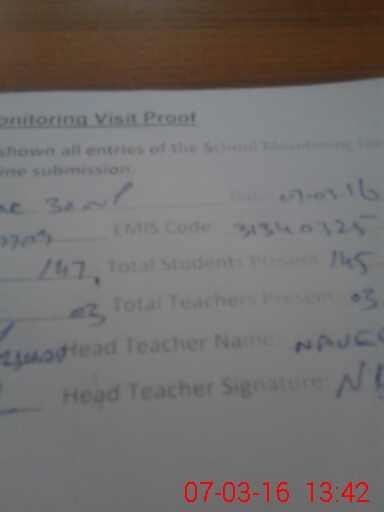 onitoring Visit Proof
shown all entries of the School Monitoring For
ine submission.
Date: 07-03-16
EMIS Code: 31340325
147, Total Students Present: 145
03 Total Teachers Present: 03
Head Teacher Name: NAVE
Head Teacher Signature:
07-03-16 13:42